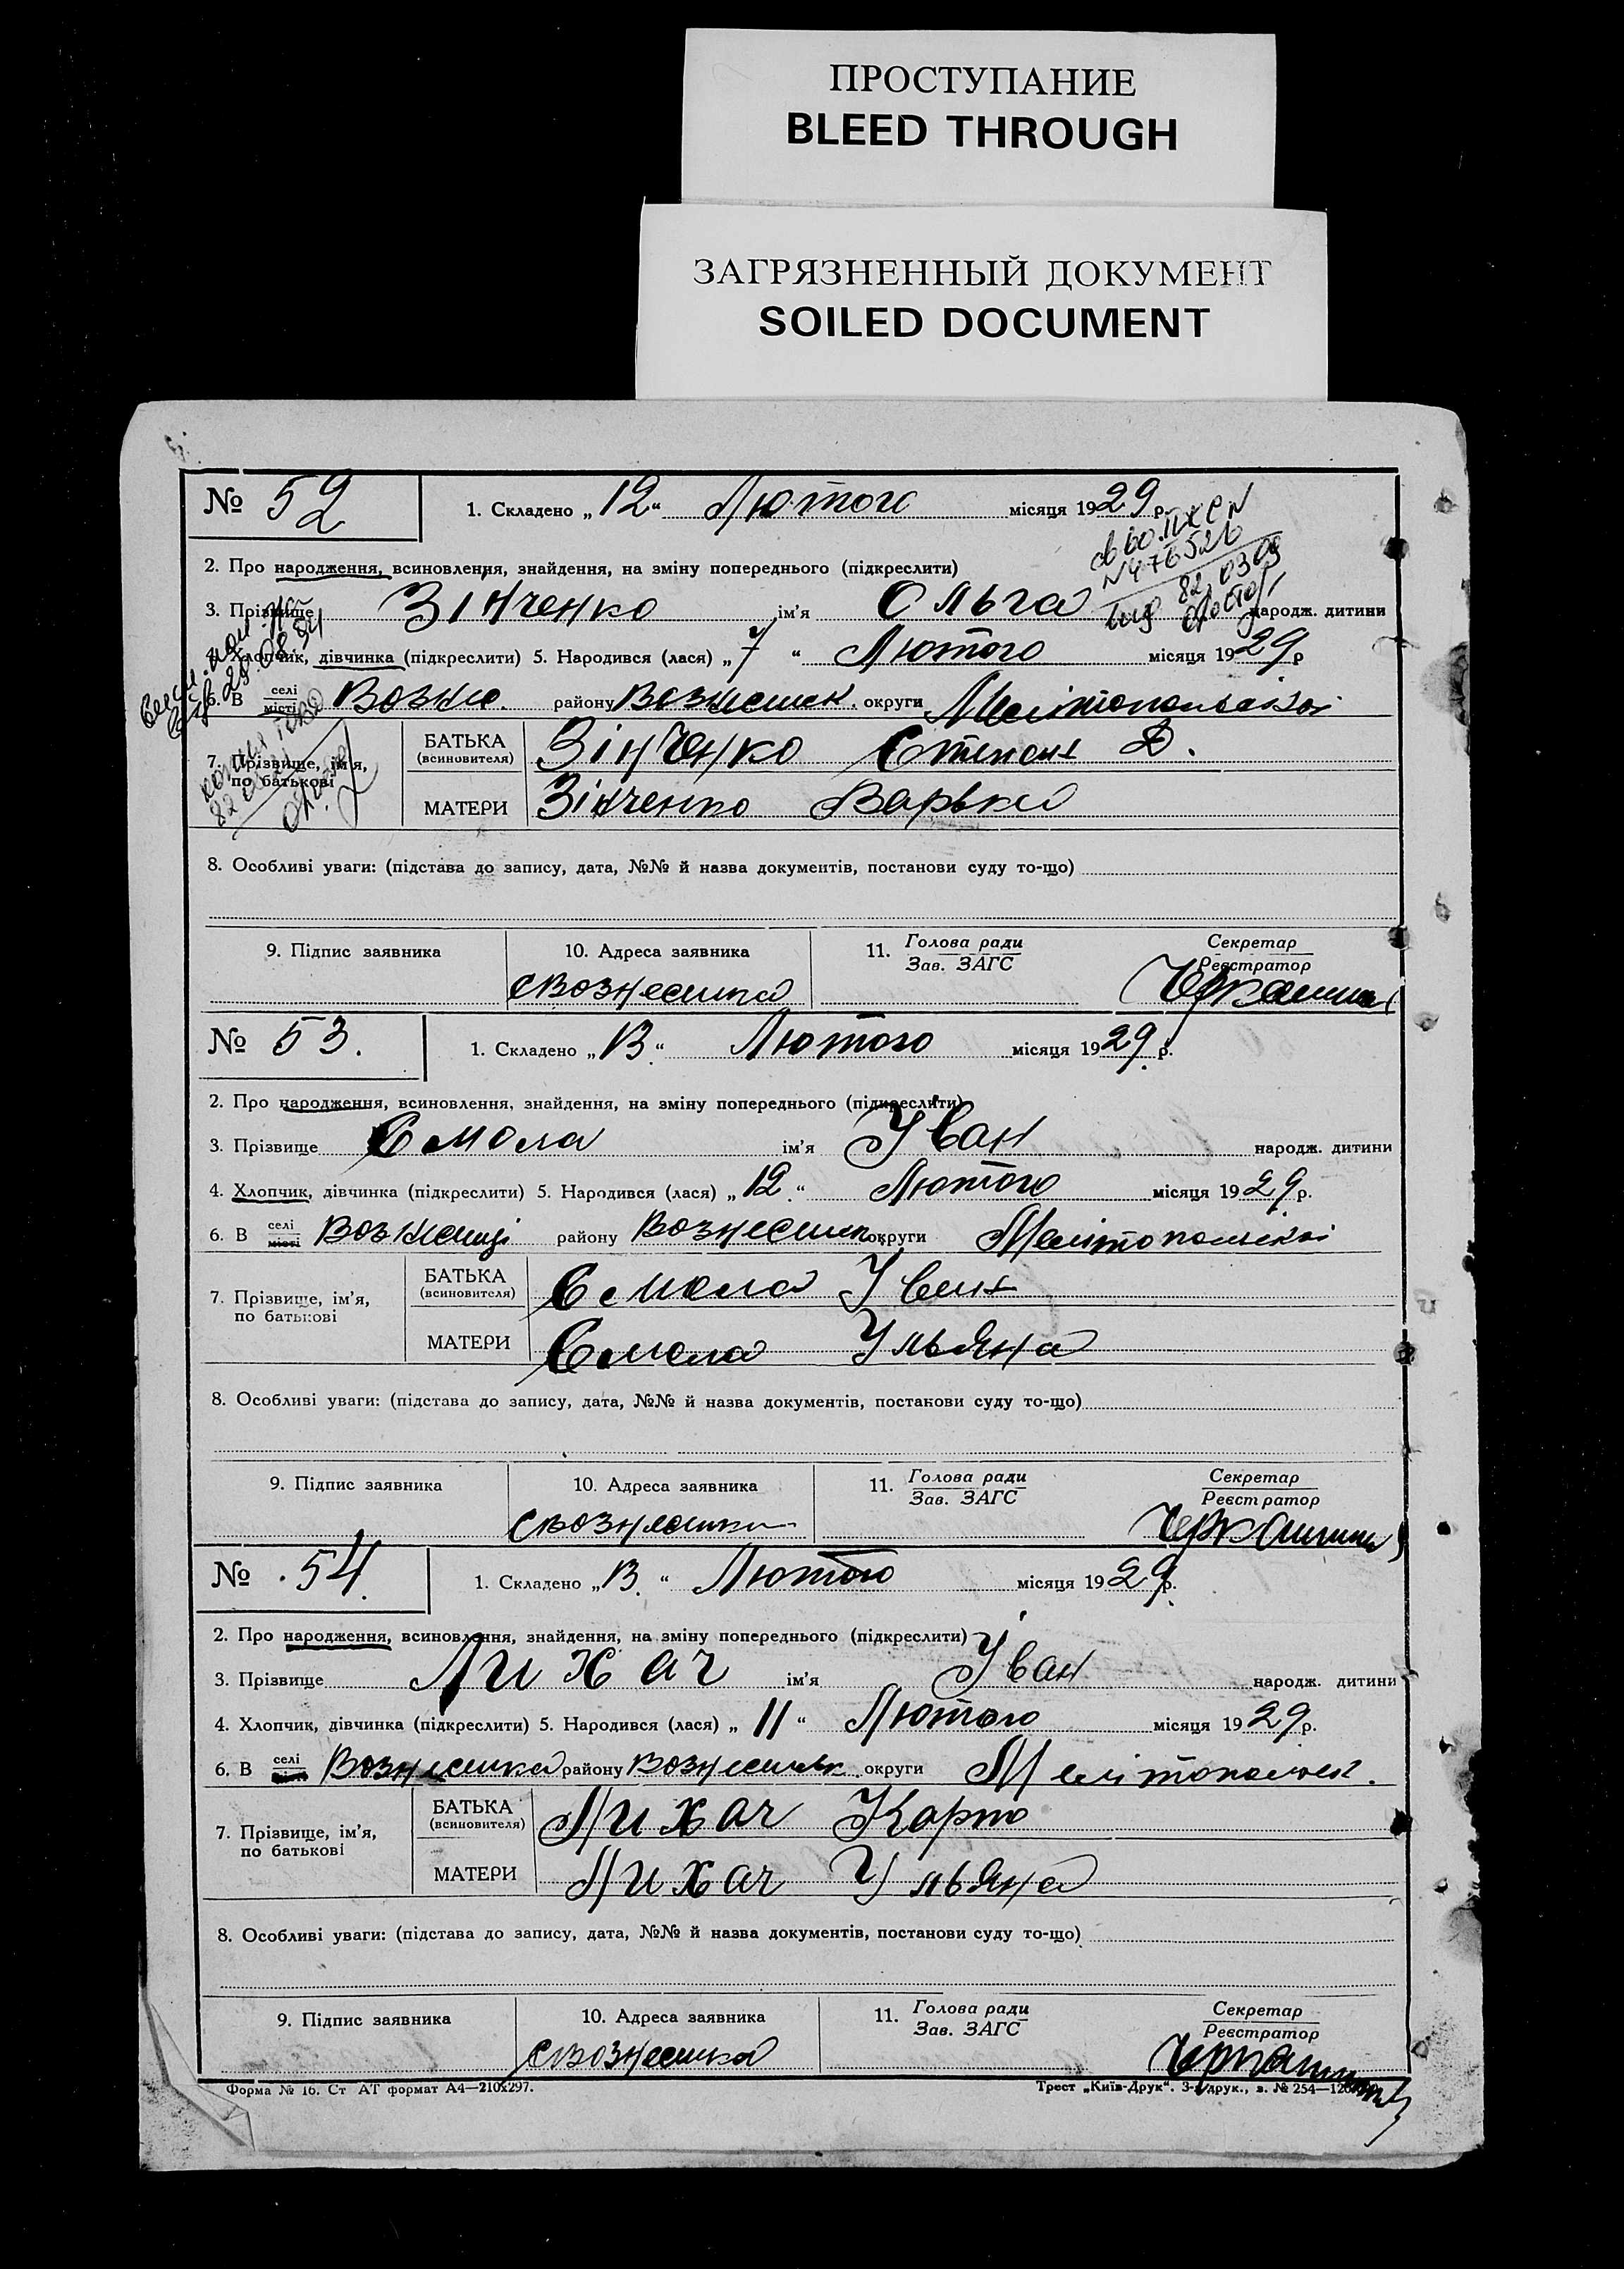 ПРОСТУПАНИЕ
BLEED THROUGH
ЗАГРЯЗНЕННЫЙ ДОКУМЕНТ
SOILED DOCUMENT
№ 52 1. Складено „12“ Лютого місяця 1929 р.
2. Про народження, всиновлення, знайдення, на зміну попереднього (підкреслити)
3. Прізвище Зінченко ім'я Ольга народж. дитини
4. Хлопчик, дівчинка (підкреслити) 5. Народився (лася) „7“ Лютого місяця 1929 р
6. В селі місті району округи Мелітопольскої
7. Прізвище, ім'я, по батькові
БАТЬКА (всиновителя) Зінченко Степан Д.
МАТЕРИ Зінченко Варька
8. Особливі уваги: (підстава до запису, дата, №№ й назва документів, постанови суду то-що)
9. Підпис заявника 10. Адреса заявника 11. Голова ради Зав. ЗАГС Секретар Реєстратор
с Вознесинка
№ 53. 1. Складено „13“ Лютого місяця 1929 р.
2. Про народження, всиновлення, знайдення, на зміну попереднього (підкреслити)
3. Прізвище Смола ім'я Іван народж. дитини
4. Хлопчик, дівчинка (підкреслити) 5. Народився (лася) „12“ Лютого місяця 1929 р.
6. В селі місті району округи Мелітопольскої
7. Прізвище, ім'я, по батькові
БАТЬКА (всиновителя) Смола Іван
МАТЕРИ Смола Ульяна
8. Особливі уваги: (підстава до запису, дата, №№ й назва документів, постанови суду то-що)
9. Підпис заявника 10. Адреса заявника 11. Голова ради Зав. ЗАГС Секретар Реєстратор
с Вознесинка
№ 54. 1. Складено „13“ Лютого місяця 1929 р.
2. Про народження, всиновлення, знайдення, на зміну попереднього (підкреслити)
3. Прізвище Лихач ім'я Іван народж. дитини
4. Хлопчик, дівчинка (підкреслити) 5. Народився (лася) „11“ Лютого місяця 1929 р.
6. В селі Вознесинка району округи
7. Прізвище, ім'я, по батькові
БАТЬКА (всиновителя) Лихач Карпо
МАТЕРИ Лихач Ульяна
8. Особливі уваги: (підстава до запису, дата, №№ й назва документів, постанови суду то-що)
9. Підпис заявника 10. Адреса заявника 11. Голова ради Зав. ЗАГС Секретар Реєстратор
с Вознесинка
Форма № 16. Ст АТ формат А4—210х297. Трест „Київ-Друк“. 3-я друк., з. № 254—